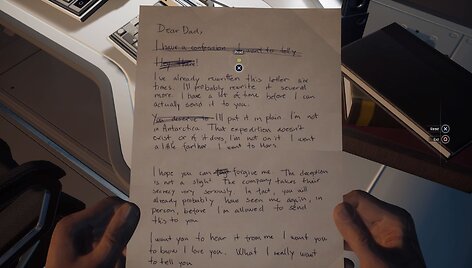 Dear Dad,
I have a confession I want to tell
!
I've already rewritten this letter six
times. I'll probably rewrite it several
more. I have a lot of time before I can
actually send it to you.
You deserve to I'll put it in plain. I'm not
in Antarctica. That expedition doesn't
exist or if it does, I'm not on it. I went
a little farther. I went to Mars.
I hope you can forgive me. The deception
is not a slight. The company takes their
secrecy very seriously. In fact, you will
already probably have seen me again, in
person, before I'm allowed to send
this to you
I want you to hear it from me I want you
to know I love you. What I really want
to tell you